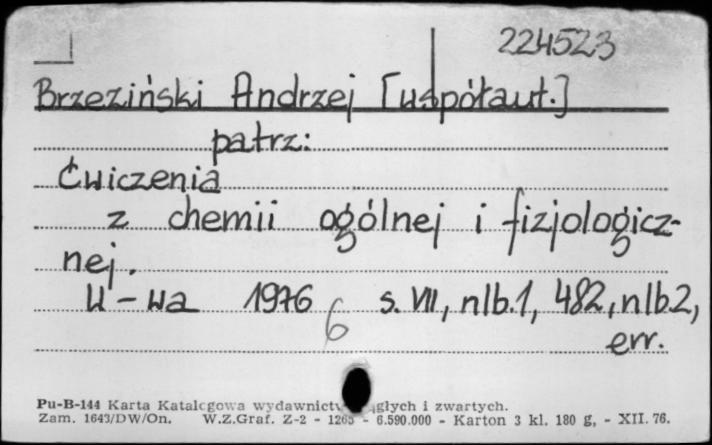 224523
Brzeziński Andrzej [współaut.]
patrz:
Ćwiczenia
z chemii ogólnej i fizjologicz-
nej.
W-wa 1976 s. VII, nlb.1, 482, nlb.2,
6
err.
Pu-B-144 Karta Katalogowa wydawnictw ciągłych i zwartych.
Zam. 1643/DW/On. W.Z.Graf. Z-2 - 1265 - 6.590.000 - Karton 3 kl. 180 g, - XII. 76.